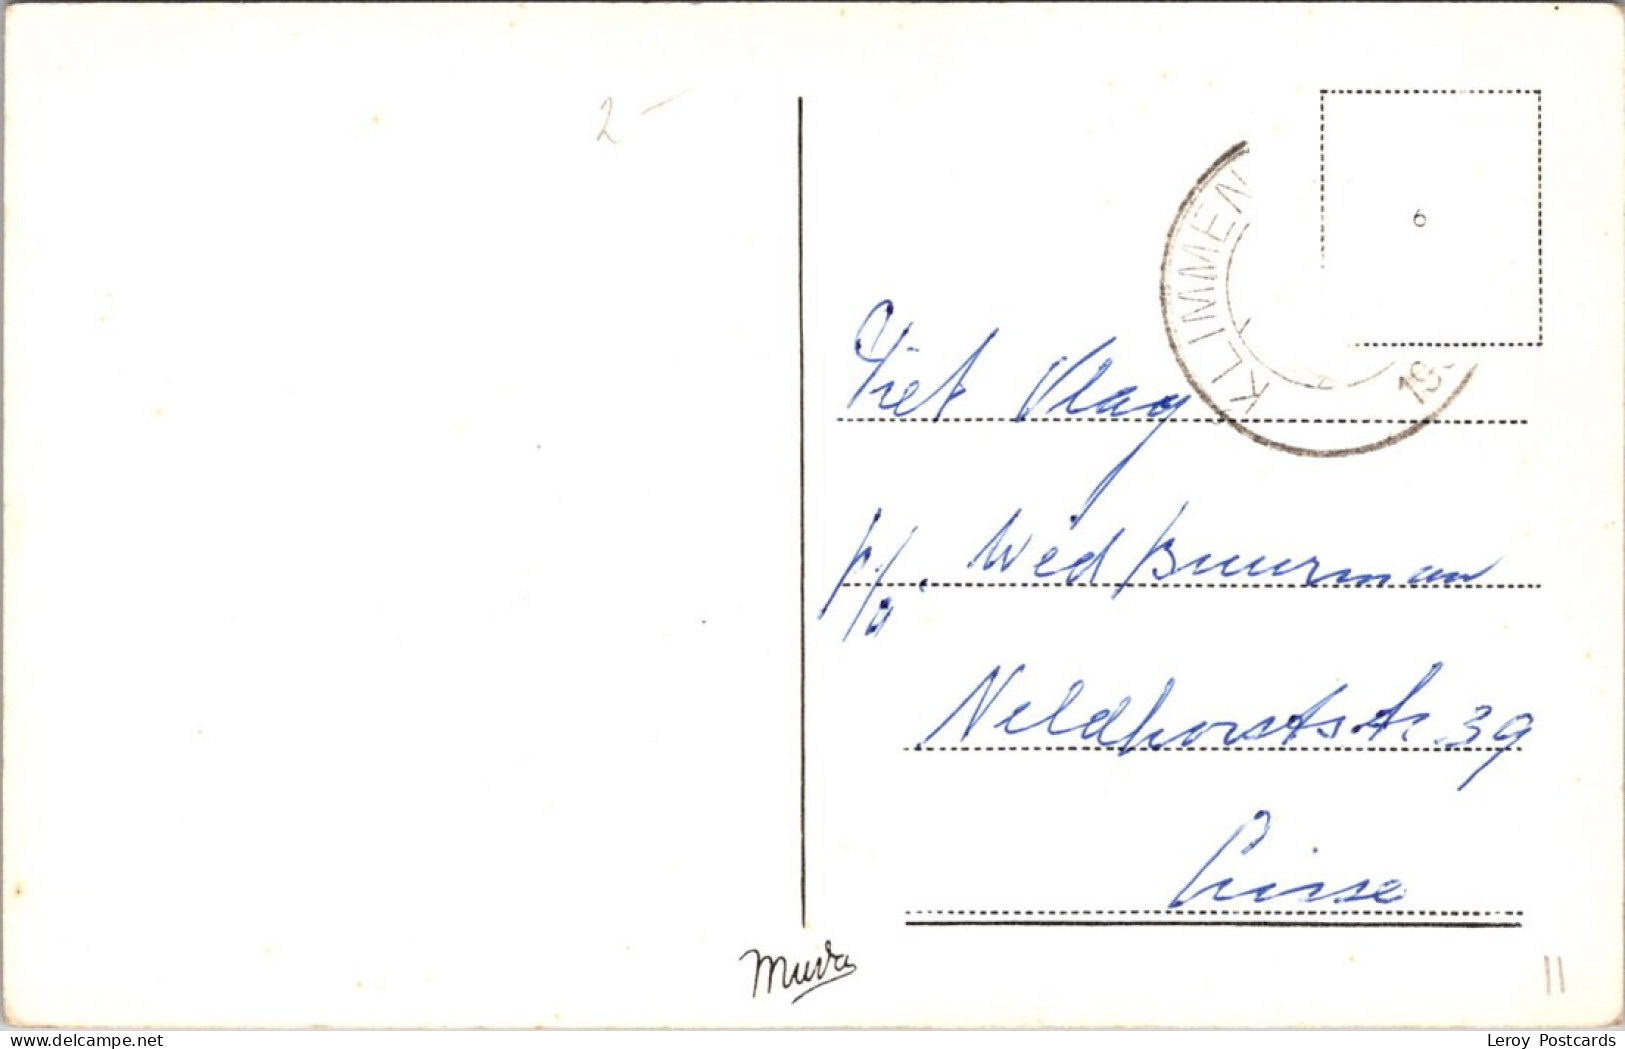 2-
KLIMMEN
19
6
Piet Vlag
p/a. Wed Buurman
Veldhorststr. 39
Lisse
Muva
11
©bonanzastock.com
Leroy Postcards